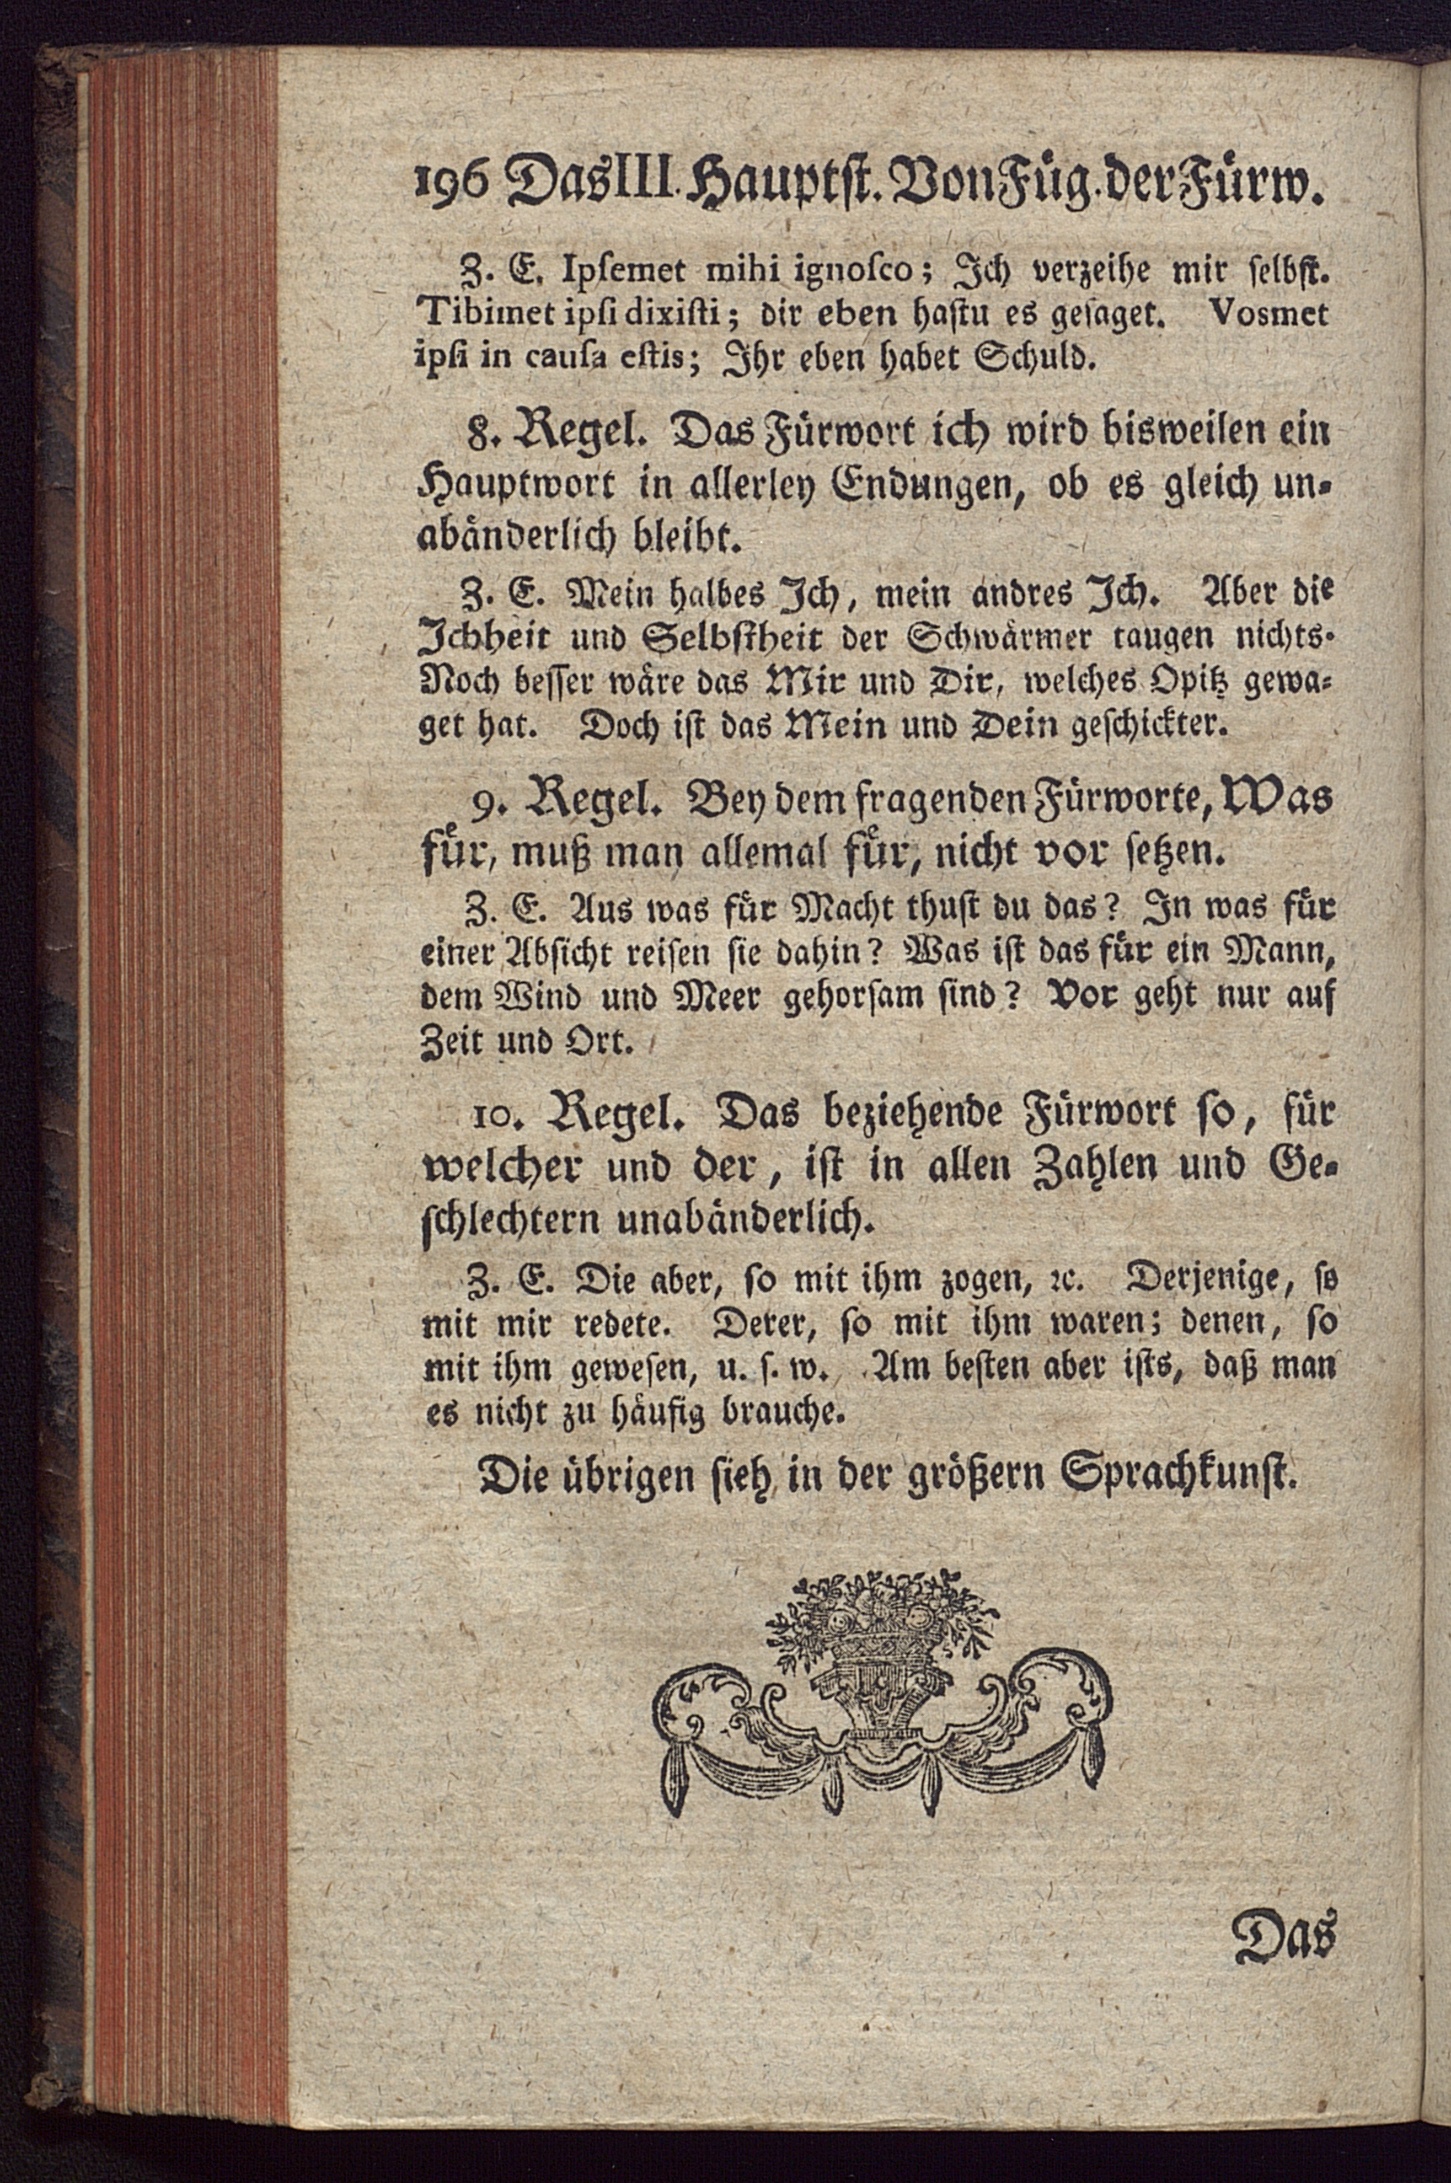 196 Das III. Hauptst. Von Füg. der Fürw.
Z. E. Ipſemet mihi ignoſco; Ich verzeihe mir ſelbſt.
Tibimet ipſi dixiſti; dir eben haſtu es geſaget. Vosmet
ipſi in cauſa eſtis; Ihr eben habet Schuld.
8. Regel. Das Fürwort ich wird bisweilen ein
Hauptwort in allerley Endungen, ob es gleich un⸗
abänderlich bleibt.
Z. E. Mein halbes Ich, mein andres Ich. Aber die
Ichheit und Selbſtheit der Schwärmer taugen nichts.
Noch beſſer wäre das Mir und Dir, welches Opitz gewa⸗
get hat. Doch iſt das Mein und Dein geſchickter.
9. Regel. Bey dem fragenden Fürworte, Was
für, muß man allemal für, nicht vor ſetzen.
Z. E. Aus was für Macht thuſt du das? In was für
einer Abſicht reiſen ſie dahin? Was iſt das für ein Mann,
dem Wind und Meer gehorſam ſind? Vor geht nur auf
Zeit und Ort.
10. Regel. Das beziehende Fürwort ſo, für
welcher und der, iſt in allen Zahlen und Ge⸗
ſchlechtern unabänderlich.
Z. E. Die aber, ſo mit ihm zogen, ꝛc. Derjenige, ſo
mit mir redete. Derer, ſo mit ihm waren; denen, ſo
mit ihm geweſen, u. ſ. w. Am beſten aber iſts, daß man
es nicht zu häufig brauche.
Die übrigen ſieh in der größern Sprachkunſt.
Das